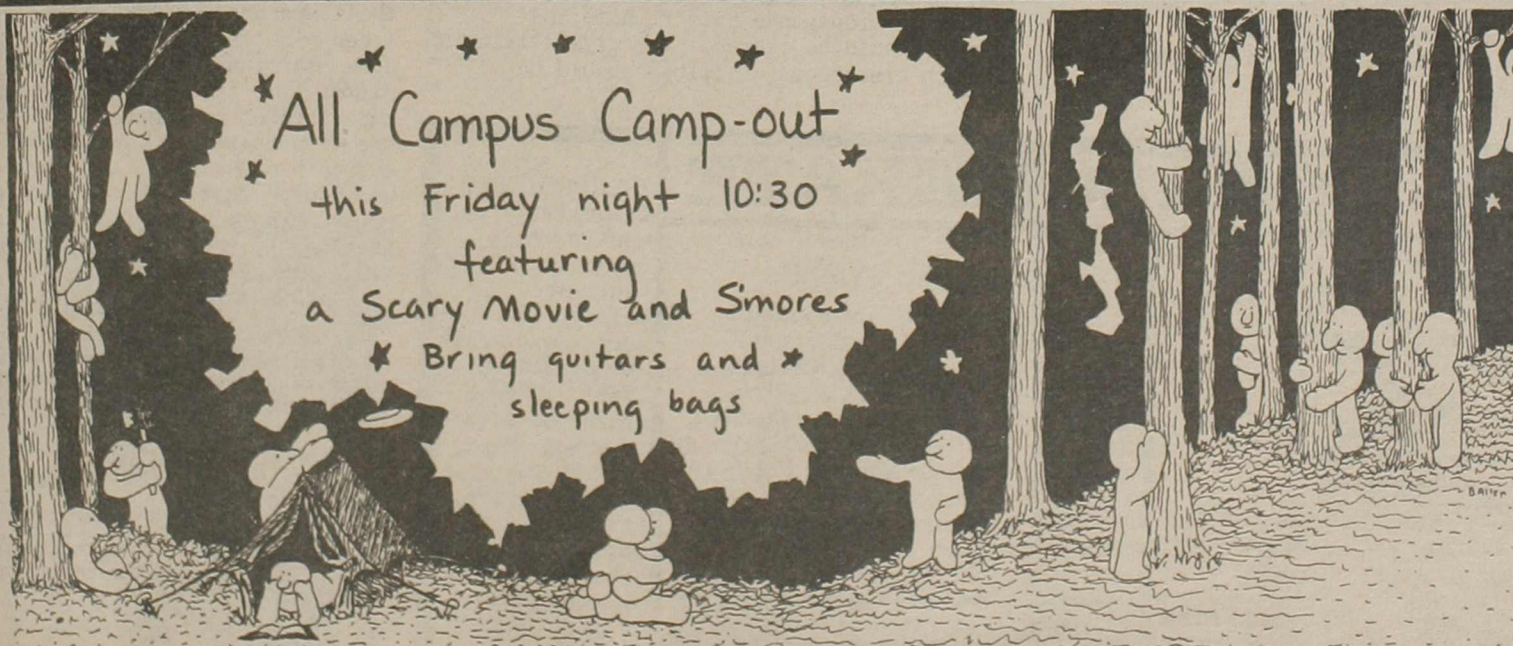 All Campus Camp-out
this Friday night 10:30
featuring
a Scary Movie and S'mores
Bring guitars and
sleeping bags